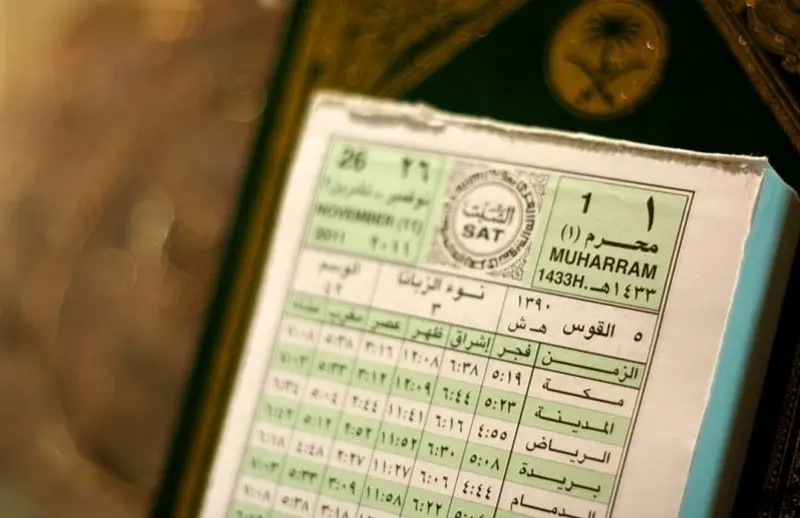 1 ١
محرم (١)
MUHARRAM
1433H. ١٤٣٣هـ
السبت
SAT
26 ٢٦
نوفمبر - تشرين٢
NOVEMBER (11)
2011 ٢٠١١
٥ القوس ١٣٩٠ هـ ش
نوء الزبانا ٣
الوسم ٤٢
الزمن فجر إشراق ظهر عصر مغرب عشاء
مكة ٥:١٩ ٦:٣٨ ١٢:٠٨ ٣:١٦ ٥:٣٨ ٧:٠٨
المدينة ٥:٢٣ ٦:٤٤ ١٢:٠٩ ٣:١٢ ٥:٣٣ ٧:٠٣
الرياض ٤:٥٥ ٦:١٦ ١١:٤١ ٢:٤٤ ٥:٠٤ ٦:٣٤
بريدة ٥:٠٨ ٦:٣٠ ١١:٥٢ ٢:٥٢ ٥:١٢ ٦:٤٢
الدمام ٤:٤٤ ٦:٠٦ ١١:٢٧ ٢:٢٧ ٤:٤٨ ٦:١٨
٦:٢٢ ١١:٥٨ ٣:٠٩ ٥:٣٣ ٧:٠٣
٣:١٨ ٥:٣٨ ٧:٠٨